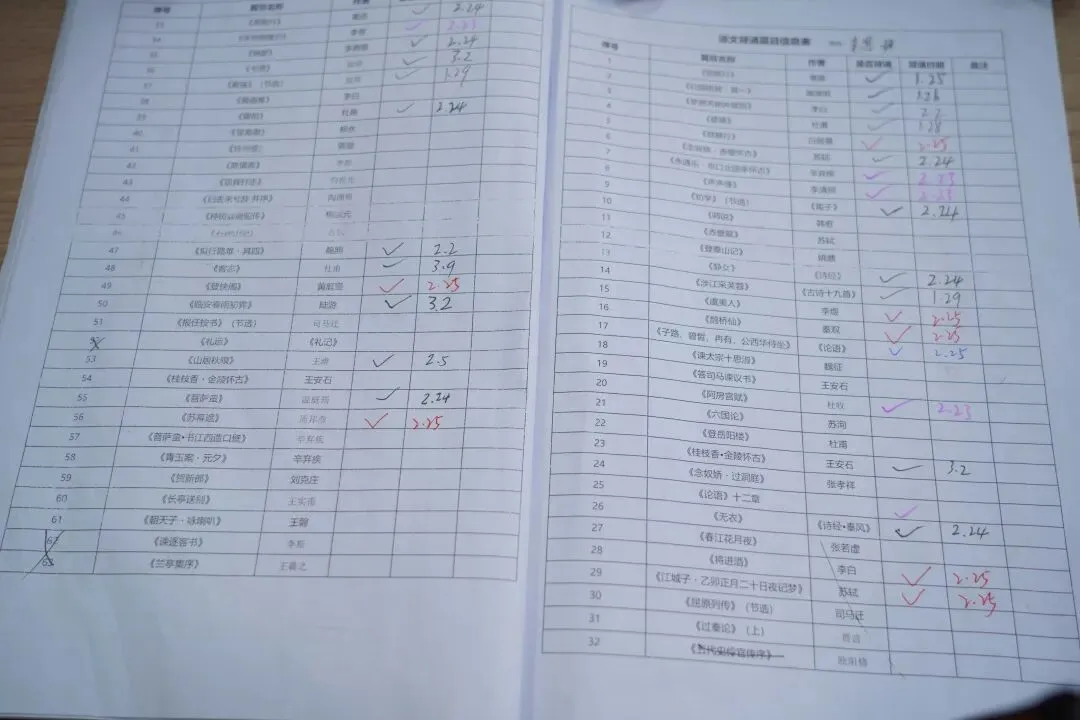 序号 篇目名称 作者 2.24
33
34 李贺 ✓ 2.23
35 《锦瑟》 李商隐 ✓ 2.24
36 ✓ 3.2
37 《离骚》（节选） 屈原 ✓ 1.29
38 《蜀道难》 李白
39 《蜀相》 杜甫 ✓ 2.24
40 《望海潮》 柳永
41 《扬州慢》 姜夔
42 《陈情表》 李密
43 《项脊轩志》 归有光
44 《归去来兮辞 并序》 陶渊明
45 《种树郭橐驼传》 柳宗元
46 《石钟山记》 苏轼
47 《拟行路难·其四》 鲍照 ✓ 2.2
48 《客至》 杜甫 ✓ 3.9
49 《登快阁》 黄庭坚 ✓ 2.25
50 《临安春雨初霁》 陆游 ✓ 3.2
51 《报任安书》（节选） 司马迁
《礼运》 《礼记》
53 《山居秋暝》 王维 ✓ 2.5
54 《桂枝香·金陵怀古》 王安石
55 《菩萨蛮》 温庭筠 ✓ 2.24
56 《苏幕遮》 周邦彦 ✓ 2.25
57 《菩萨蛮•书江西造口壁》 辛弃疾
58 《青玉案·元夕》 辛弃疾
59 《贺新郎》 刘克庄
60 《长亭送别》 王实甫
61 《朝天子·咏喇叭》 王磐
62 《谏逐客书》 李斯
63 《兰亭集序》 王羲之
语文背诵篇目信息表
序号 篇目名称 作者 是否背诵 背诵日期 备注
1 《短歌行》 曹操 ✓ 1.25
2 《归园田居 其一》 陶渊明 ✓ 1.26
3 《梦游天姥吟留别》 李白 ✓ 2.2
4 《登高》 杜甫 ✓ 1.28
5 《琵琶行》 白居易 ✓ 2.25
6 《念奴娇·赤壁怀古》 苏轼 ✓ 2.24
7 《永遇乐·京口北固亭怀古》 辛弃疾 ✓ 2.23
8 《声声慢》 李清照 ✓ 2.23
9 《劝学》（节选） 《荀子》 ✓ 2.24
10 《师说》 韩愈
11 《赤壁赋》 苏轼
12 《登泰山记》 姚鼐
13 《静女》 《诗经》 ✓ 2.24
14 《涉江采芙蓉》 《古诗十九首》 ✓ 1.29
15 《虞美人》 李煜 ✓ 2.25
16 《鹊桥仙》 秦观 ✓ 2.25
17 《子路、曾皙、冉有、公西华侍坐》 《论语》 ✓ 2.25
18 《谏太宗十思疏》 魏征
19 《答司马谏议书》 王安石
20 《阿房宫赋》 杜牧 ✓ 2.23
21 《六国论》 苏洵
22 《登岳阳楼》 杜甫
23 《桂枝香•金陵怀古》 王安石 ✓ 3.2
24 《念奴娇·过洞庭》 张孝祥
25 《论语》十二章 ✓
26 《无衣》 《诗经•秦风》 ✓ 2.24
27 《春江花月夜》 张若虚
28 《将进酒》 李白 ✓ 2.25
29 《江城子·乙卯正月二十日夜记梦》 苏轼 ✓ 2.25
30 《屈原列传》（节选） 司马迁
31 《过秦论》（上） 贾谊
32 《五代史伶官传序》 欧阳修